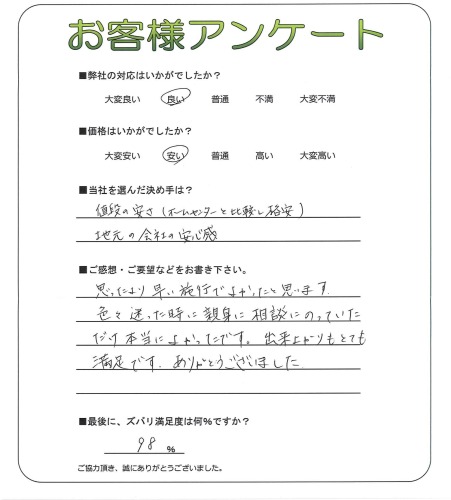 お客様アンケート
■弊社の対応はいかがでしたか？
大変良い 良い 普通 不満 大変不満
■価格はいかがでしたか？
大変安い 安い 普通 高い 大変高い
■当社を選んだ決め手は？
値段の安さ（ホームセンターと比較し格安）
地元の会社の安心感
■ご感想・ご要望などをお書き下さい。
思ったより早い施行でよかったと思います.
色々迷った時に親身に相談にのっていた
だけ本当によかったです。出来上がりもとても
満足です. ありがとうございました
■最後に、ズバリ満足度は何％ですか？
98 ％
ご協力頂き、誠にありがとうございました。